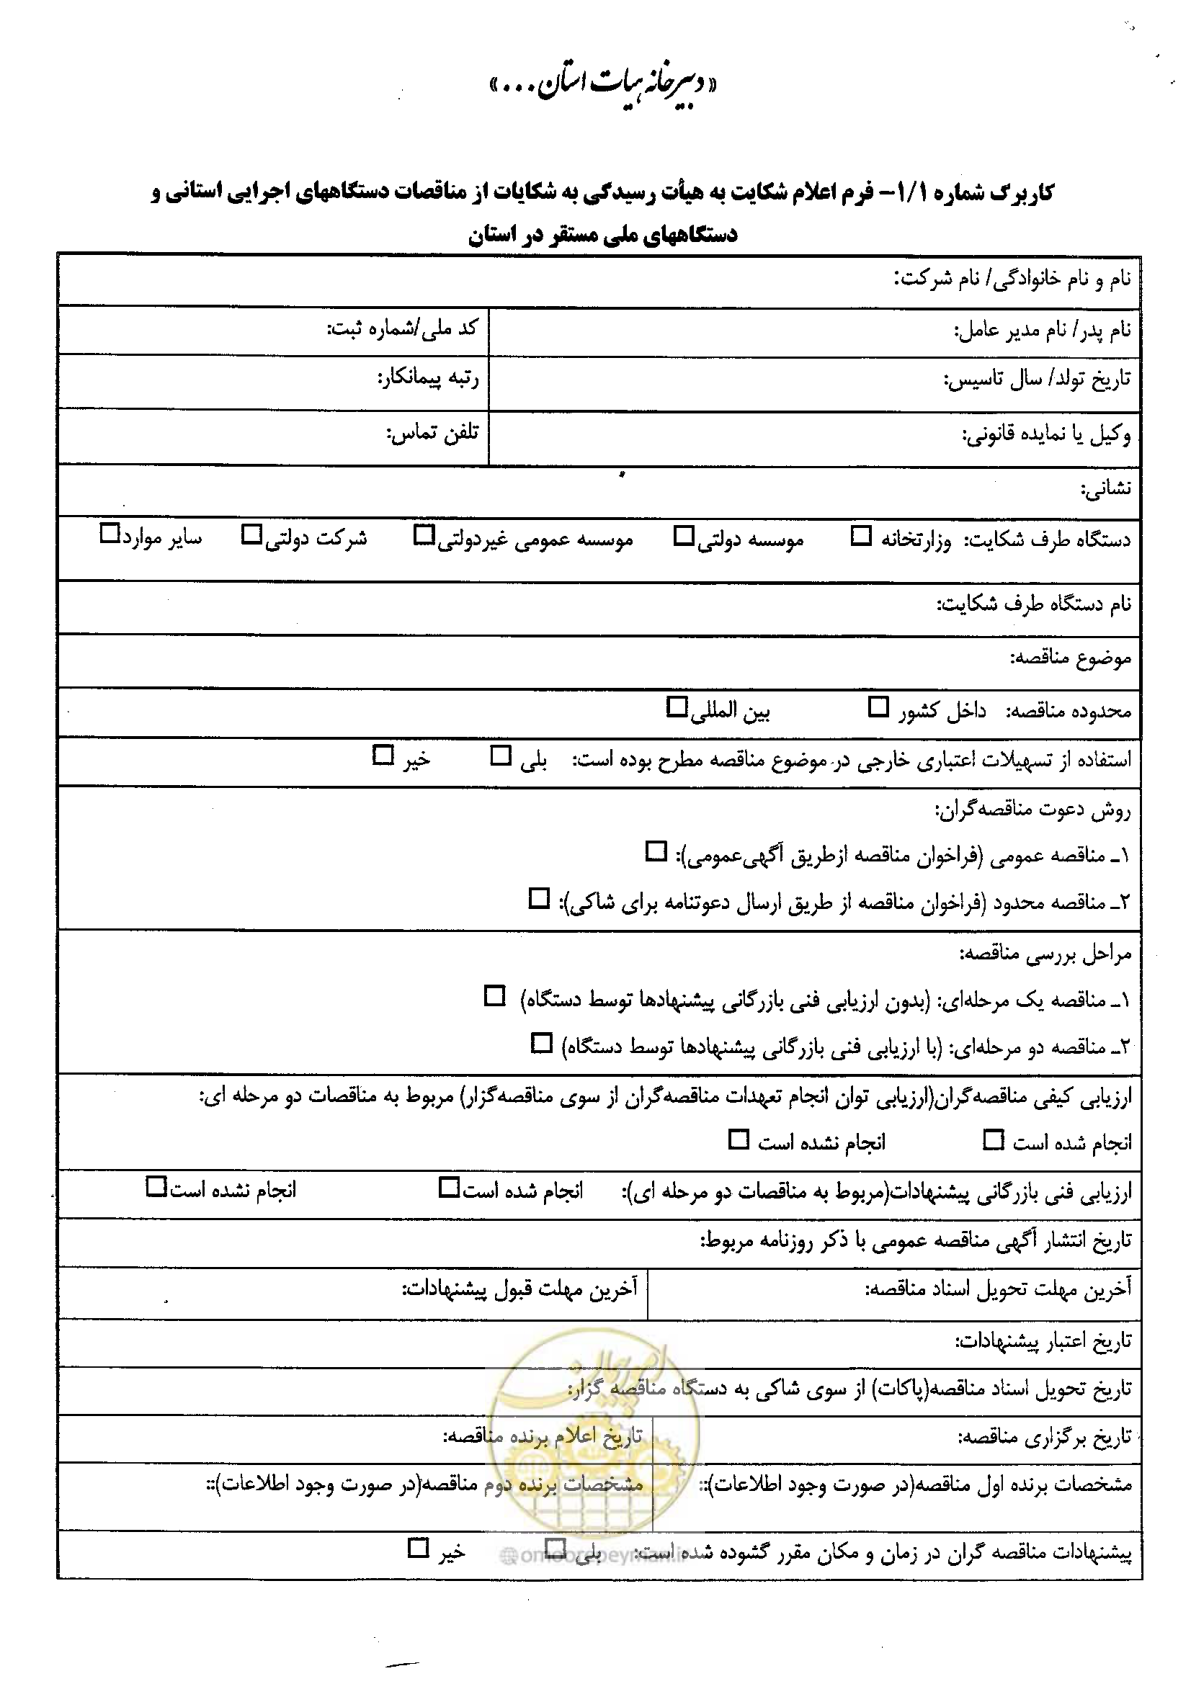 «دبیرخانه هیات استان...»
کاربرگ شماره ۱/۱- فرم اعلام شکایت به هیأت رسیدگی به شکایات از مناقصات دستگاههای اجرایی استانی و
دستگاههای ملی مستقر در استان
نام و نام خانوادگی/ نام شرکت:
نام پدر/ نام مدیر عامل: کد ملی/شماره ثبت:
تاریخ تولد/ سال تاسیس: رتبه پیمانکار:
وکیل یا نماینده قانونی: تلفن تماس:
نشانی:
دستگاه طرف شکایت: وزارتخانه □ موسسه دولتی□ موسسه عمومی غیردولتی□ شرکت دولتی□ سایر موارد□
نام دستگاه طرف شکایت:
موضوع مناقصه:
محدوده مناقصه: داخل کشور □ بین المللی□
استفاده از تسهیلات اعتباری خارجی در موضوع مناقصه مطرح بوده است: بلی □ خیر □
روش دعوت مناقصه‌گران:
۱ـ مناقصه عمومی (فراخوان مناقصه ازطریق آگهی‌عمومی): □
۲ـ مناقصه محدود (فراخوان مناقصه از طریق ارسال دعوتنامه برای شاکی): □
مراحل بررسی مناقصه:
۱ـ مناقصه یک مرحله‌ای: (بدون ارزیابی فنی بازرگانی پیشنهادها توسط دستگاه) □
۲ـ مناقصه دو مرحله‌ای: (با ارزیابی فنی بازرگانی پیشنهادها توسط دستگاه) □
ارزیابی کیفی مناقصه‌گران(ارزیابی توان انجام تعهدات مناقصه‌گران از سوی مناقصه‌گزار) مربوط به مناقصات دو مرحله ای:
انجام شده است □ انجام نشده است □
ارزیابی فنی بازرگانی پیشنهادات(مربوط به مناقصات دو مرحله ای): انجام شده است□ انجام نشده است□
تاریخ انتشار آگهی مناقصه عمومی با ذکر روزنامه مربوط:
آخرین مهلت تحویل اسناد مناقصه: آخرین مهلت قبول پیشنهادات:
تاریخ اعتبار پیشنهادات:
تاریخ تحویل اسناد مناقصه(پاکات) از سوی شاکی به دستگاه مناقصه گزار:
تاریخ برگزاری مناقصه: تاریخ اعلام برنده مناقصه:
مشخصات برنده اول مناقصه(در صورت وجود اطلاعات):: مشخصات برنده دوم مناقصه(در صورت وجود اطلاعات)::
پیشنهادات مناقصه گران در زمان و مکان مقرر گشوده شده است: بلی □ خیر □
امور پیمان
@omoorepeyman.ir